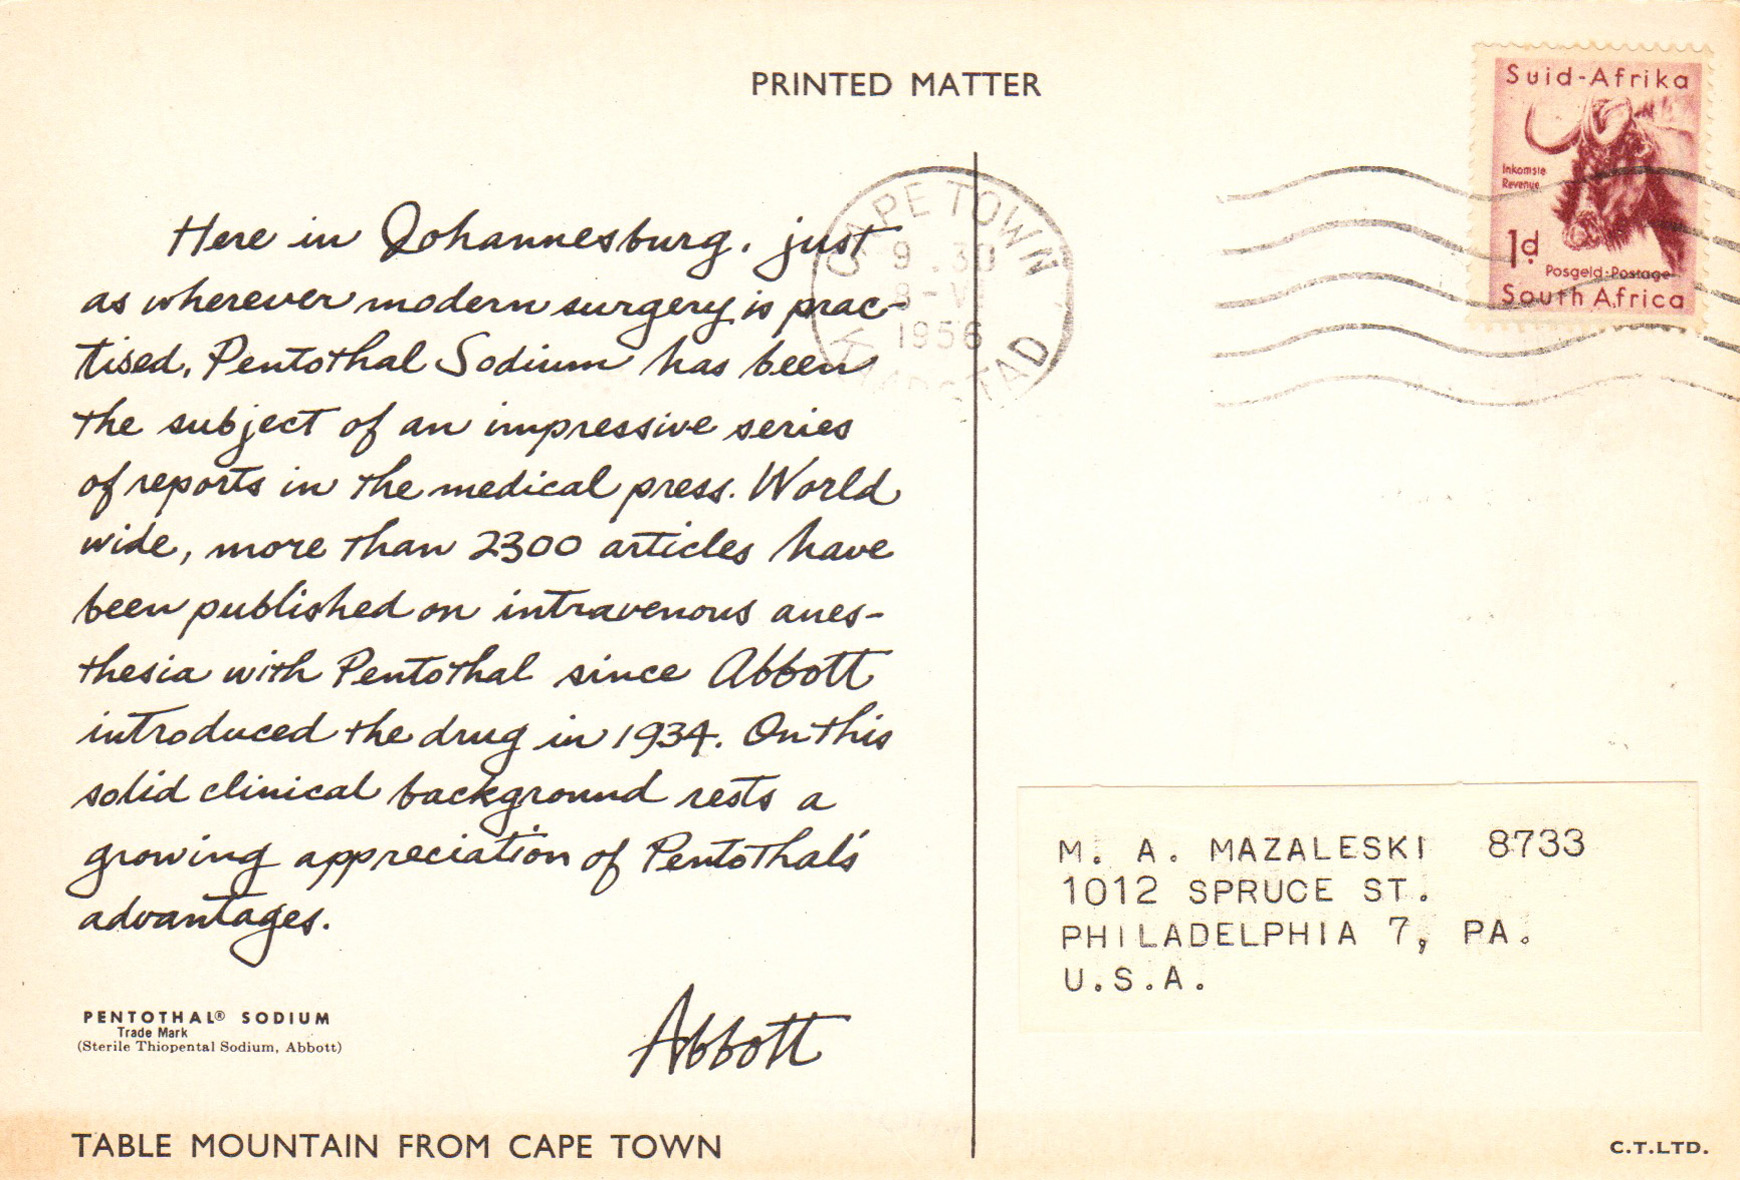 PRINTED MATTER
Suid-Afrika
Inkomste
Revenue
1d
Posgeld-Postage
South Africa
CAPE TOWN
9.30
1956
KAAPSTAD
Here in Johannesburg, just
as wherever modern surgery is prac-
tised, Pentothal Sodium has been
the subject of an impressive series
of reports in the medical press. World
wide, more than 2300 articles have
been published on intravenous anes-
thesia with Pentothal since Abbott
introduced the drug in 1934. On this
solid clinical background rests a
growing appreciation of Pentothal's
advantages.
Abbott
PENTOTHAL® SODIUM
Trade Mark
(Sterile Thiopental Sodium, Abbott)
TABLE MOUNTAIN FROM CAPE TOWN
M. A. MAZALESKI 8733
1012 SPRUCE ST.
PHILADELPHIA 7, PA.
U.S.A.
C.T.LTD.